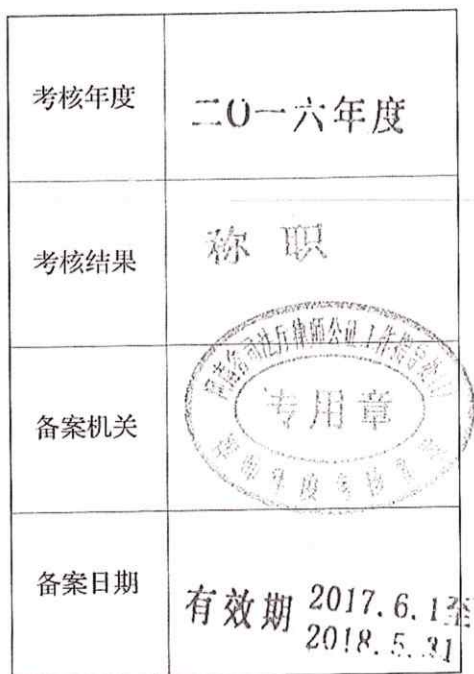 考核年度
二0一六年度
考核结果
称职
备案机关
专用章
备案日期
有效期 2017.6.1至
2018.5.31